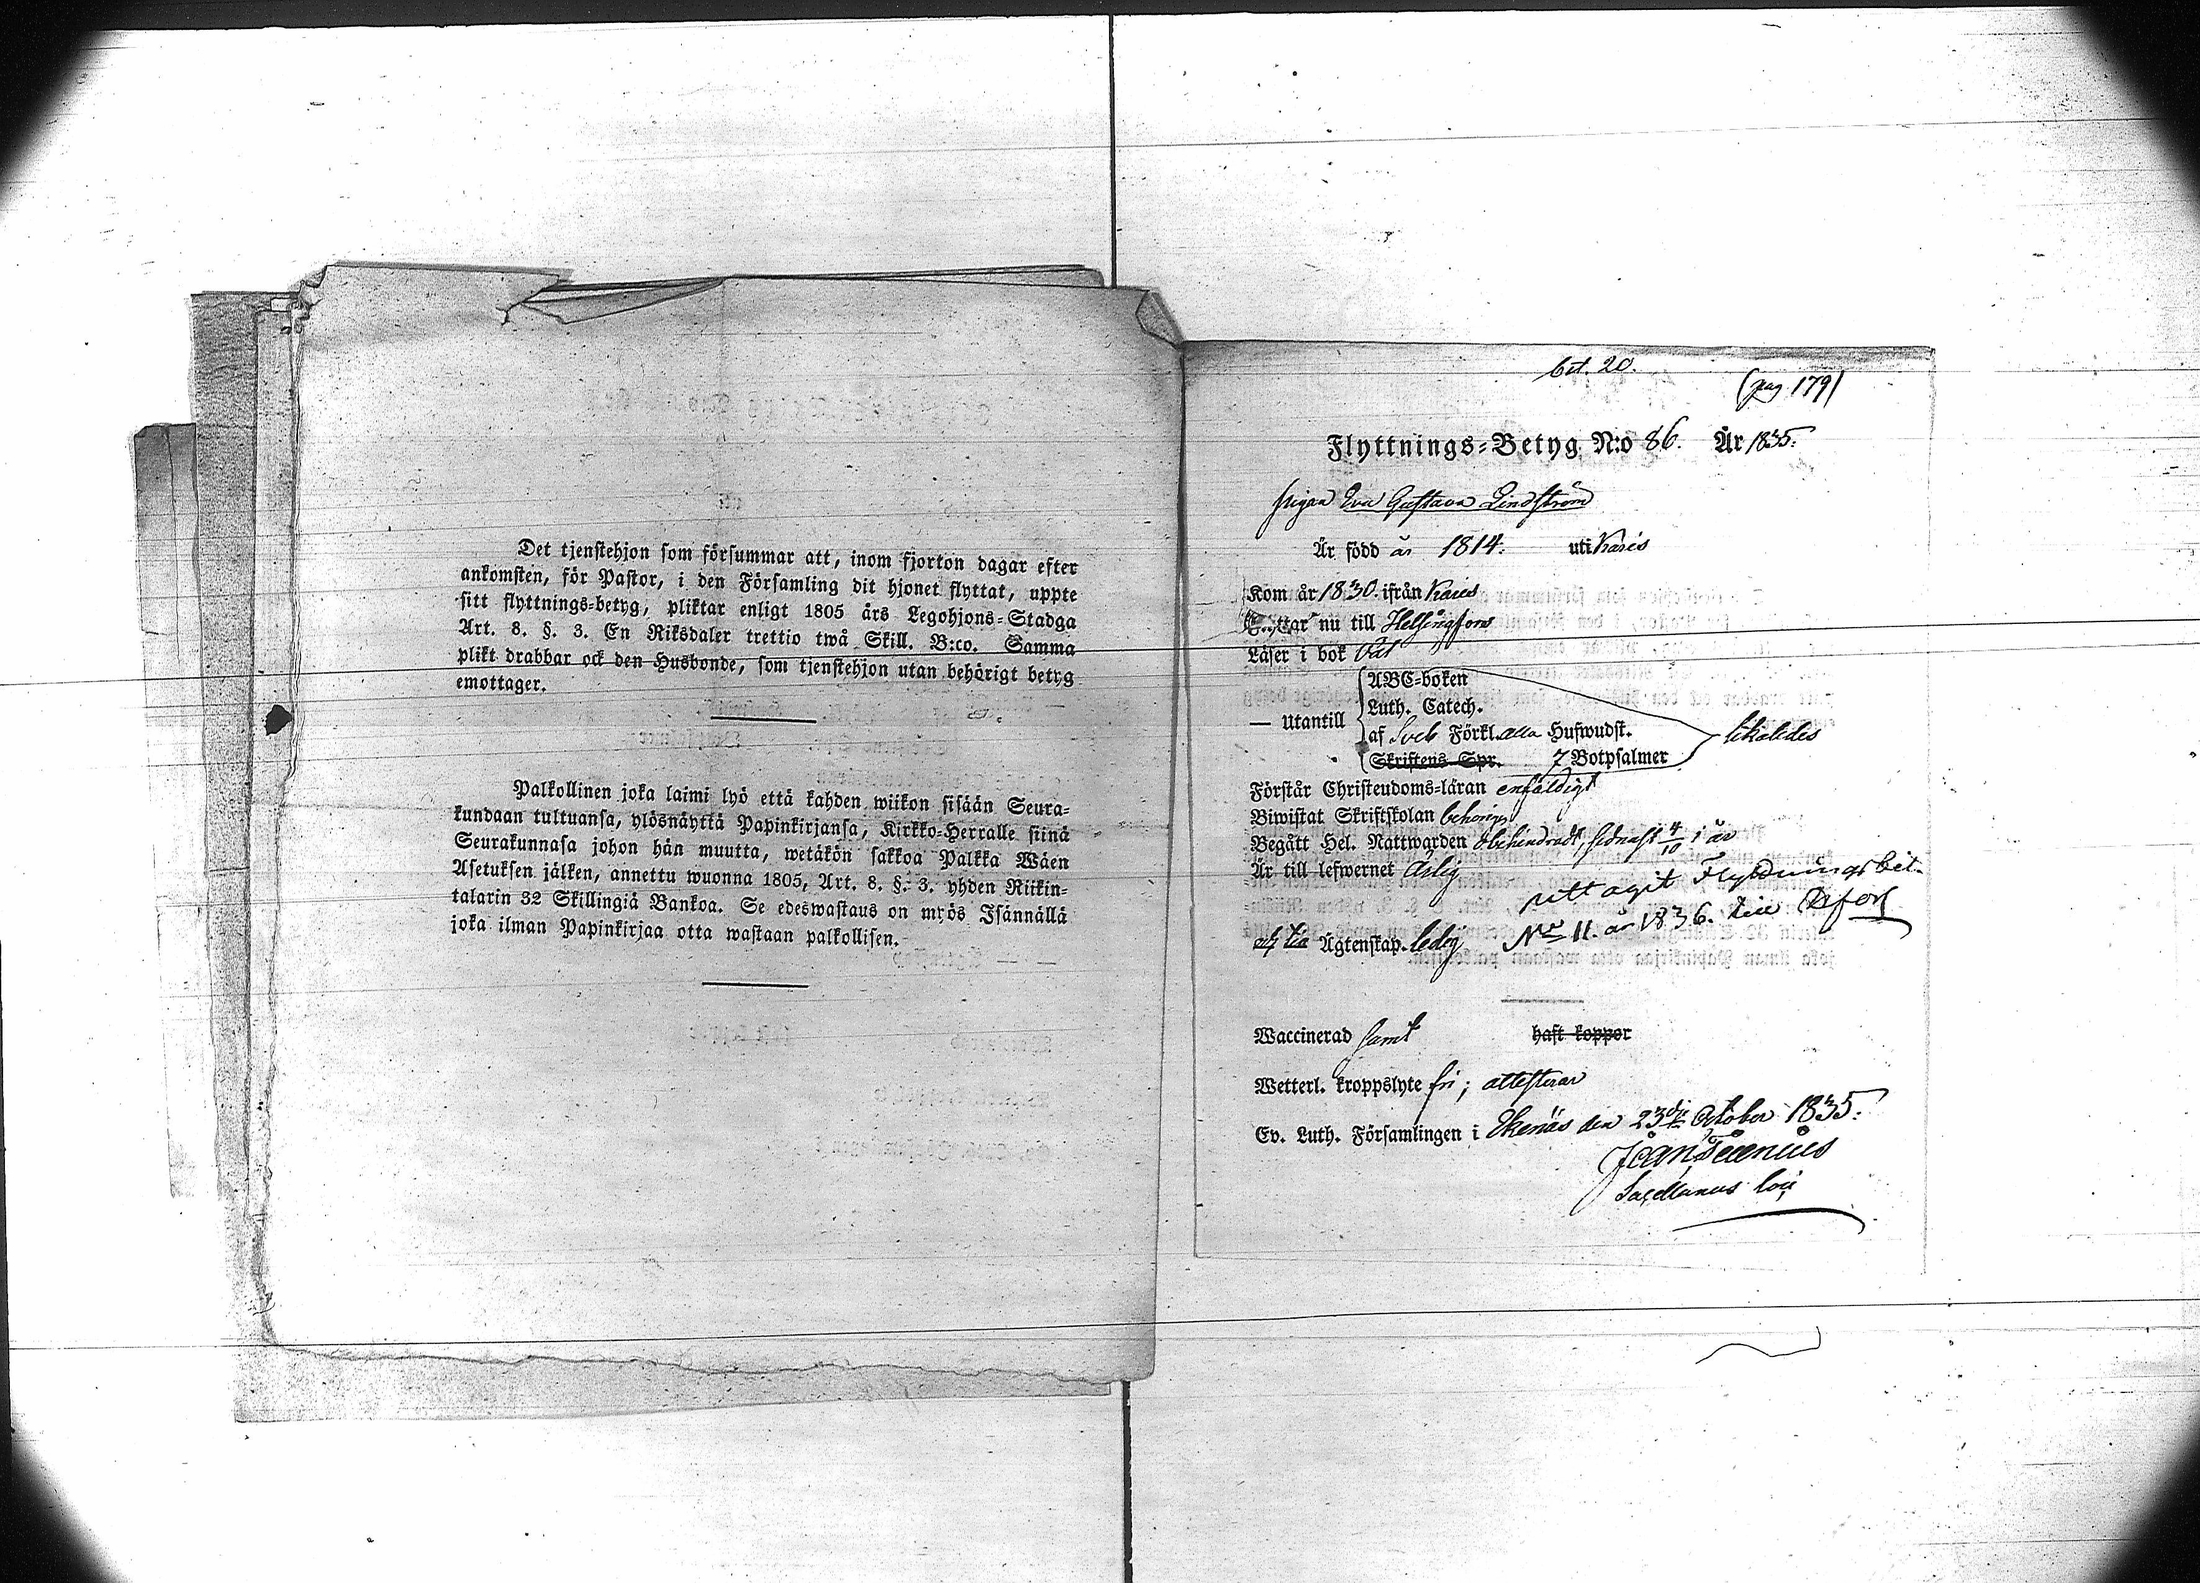 Det tjenstehjon som försummar att, inom fjorton dagar efter
ankomsten, för Pastor, i den Församling dit hjonet flyttat, uppte
sitt flyttnings-betyg, pliktar enligt 1805 års Legohjons-Stadga
Art. 8. §. 3. En Riksdaler trettio twå Skill. B:co. Samma
plikt drabbar ock den Husbonde, som tjenstehjon utan behörigt betyg
emottager.
Palkollinen joka laimi lyö että kahden wiikon sisään Seura-
kundaan tultuansa, ylösnäyttä Papinkirjansa, Kirkko-Herralle siinä
Seurakunnasa johon hän muutta, wetäkön sakkoa Palkka Wäen
Asetuksen jälken, annettu wuonna 1805, Art. 8. §. 3. yhden Riikin-
talarin 32 Skillingiä Bankoa. Se edeswastaus on myös Isännällä
joka ilman Papinkirjaa otta wastaan palkollisen.
bet. 20.
(pag 179)
Flyttnings-Betyg N:o 86. År 1835.
Pigan Eva Gustava Lindström
Är född år 1814. uti Karis
Kom år 1830. ifrån Karis
nu till Helsingfors
Läser i bok
ABC-boken
Luth. Catech.
— Utantill
af Sveb Förkl. alla Hufwudst. likaledes
Skriftens Spr. 7 Botpsalmer
Förstår Christendoms-läran enfäldigt
Biwistat Skriftskolan
Begått Hel. Nattwarden obehindradt, sednast 4/10 i år
Är till lefwernet ärlig
uttagit Flyttningsbet.
Ägtenskap. ledig No 11. år 1836.
Waccinerad samt haft koppor
Wetterl. kroppslyte fri; attesterar
Ev. Luth. Församlingen i Ekenäs den 23die October 1835.
Sacellanus loci